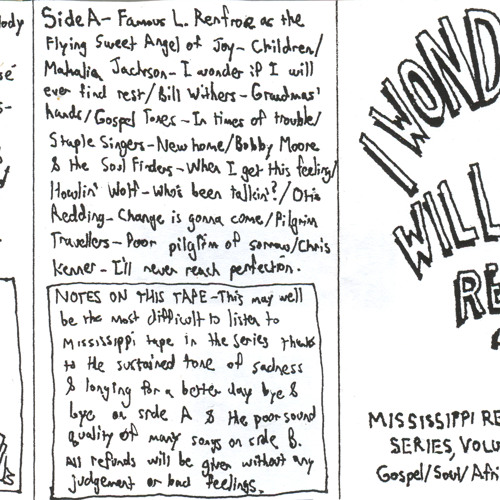 lody
sé
s-
Side A- Famous L. Renfroe as the
Flying Sweet Angel of Joy- Children/
Mahalia Jackson- I wonder if I will
ever find rest/Bill Withers- Grandmas'
hands/Gospel Tones- In times of trouble/
Staple Singers- New home/Bobby Moore
& the Soul Finders- When I get this feeling/
Howlin' Wolf- who's been talkin'?/Otis
Redding- Change is gonna come/Pilgrim
Travellers- Poor pilgrim of sorrow/Chris
Kenner- I'll never reach perfection.
NOTES ON THIS TAPE- This may well
be the most difficult to listen to
Mississippi tape in the series thanks
to the sustained tone of sadness
& longing for a better day bye &
bye on side A & the poor sound
quality of many songs on side B.
All refunds will be given without any
judgement or bad feelings.
I WOND
WILL
RE
MISSISSIPPI RE
SERIES, VOLU
Gospel/Soul/Afri